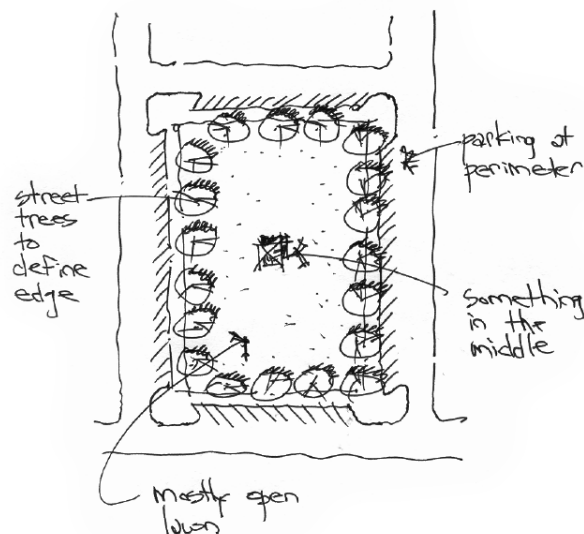 parking at
perimeter
street
trees
to
define
edge
something
in the
middle
mostly open
lawn